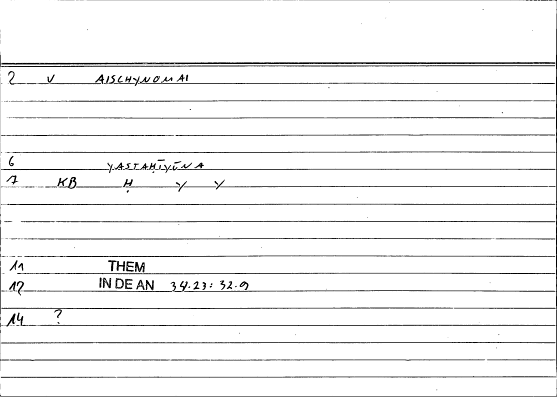 2 V AISCHYNOMAI
6 YASTAḤĪYŪNA
7 KB Ḥ Y Y
11 THEM
12 IN DE AN 34.23: 32.9
14 ?